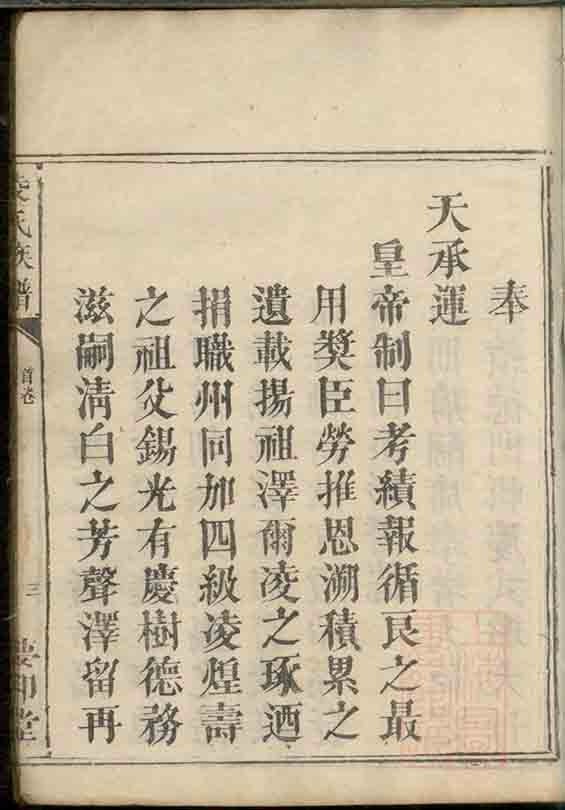 奉
天承運
皇帝制曰考績報循良之最
用獎臣勞推恩溯積累之
遺載揚祖澤爾凌之琢迺
捐職州同加四級凌煌壽
之祖父錫光有慶樹德務
滋嗣清白之芳聲澤留再
凌氏族譜
首卷
三
堂